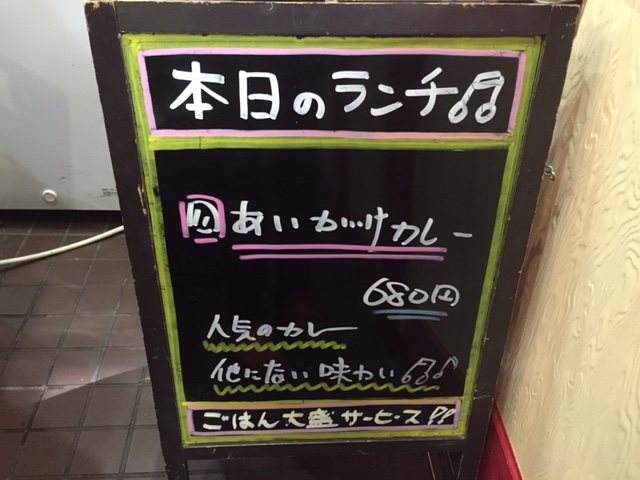 本日のランチ♫
あいがけカレー
680円
人気のカレー
他にない味わい♫♪
ごはん大盛サービス!!